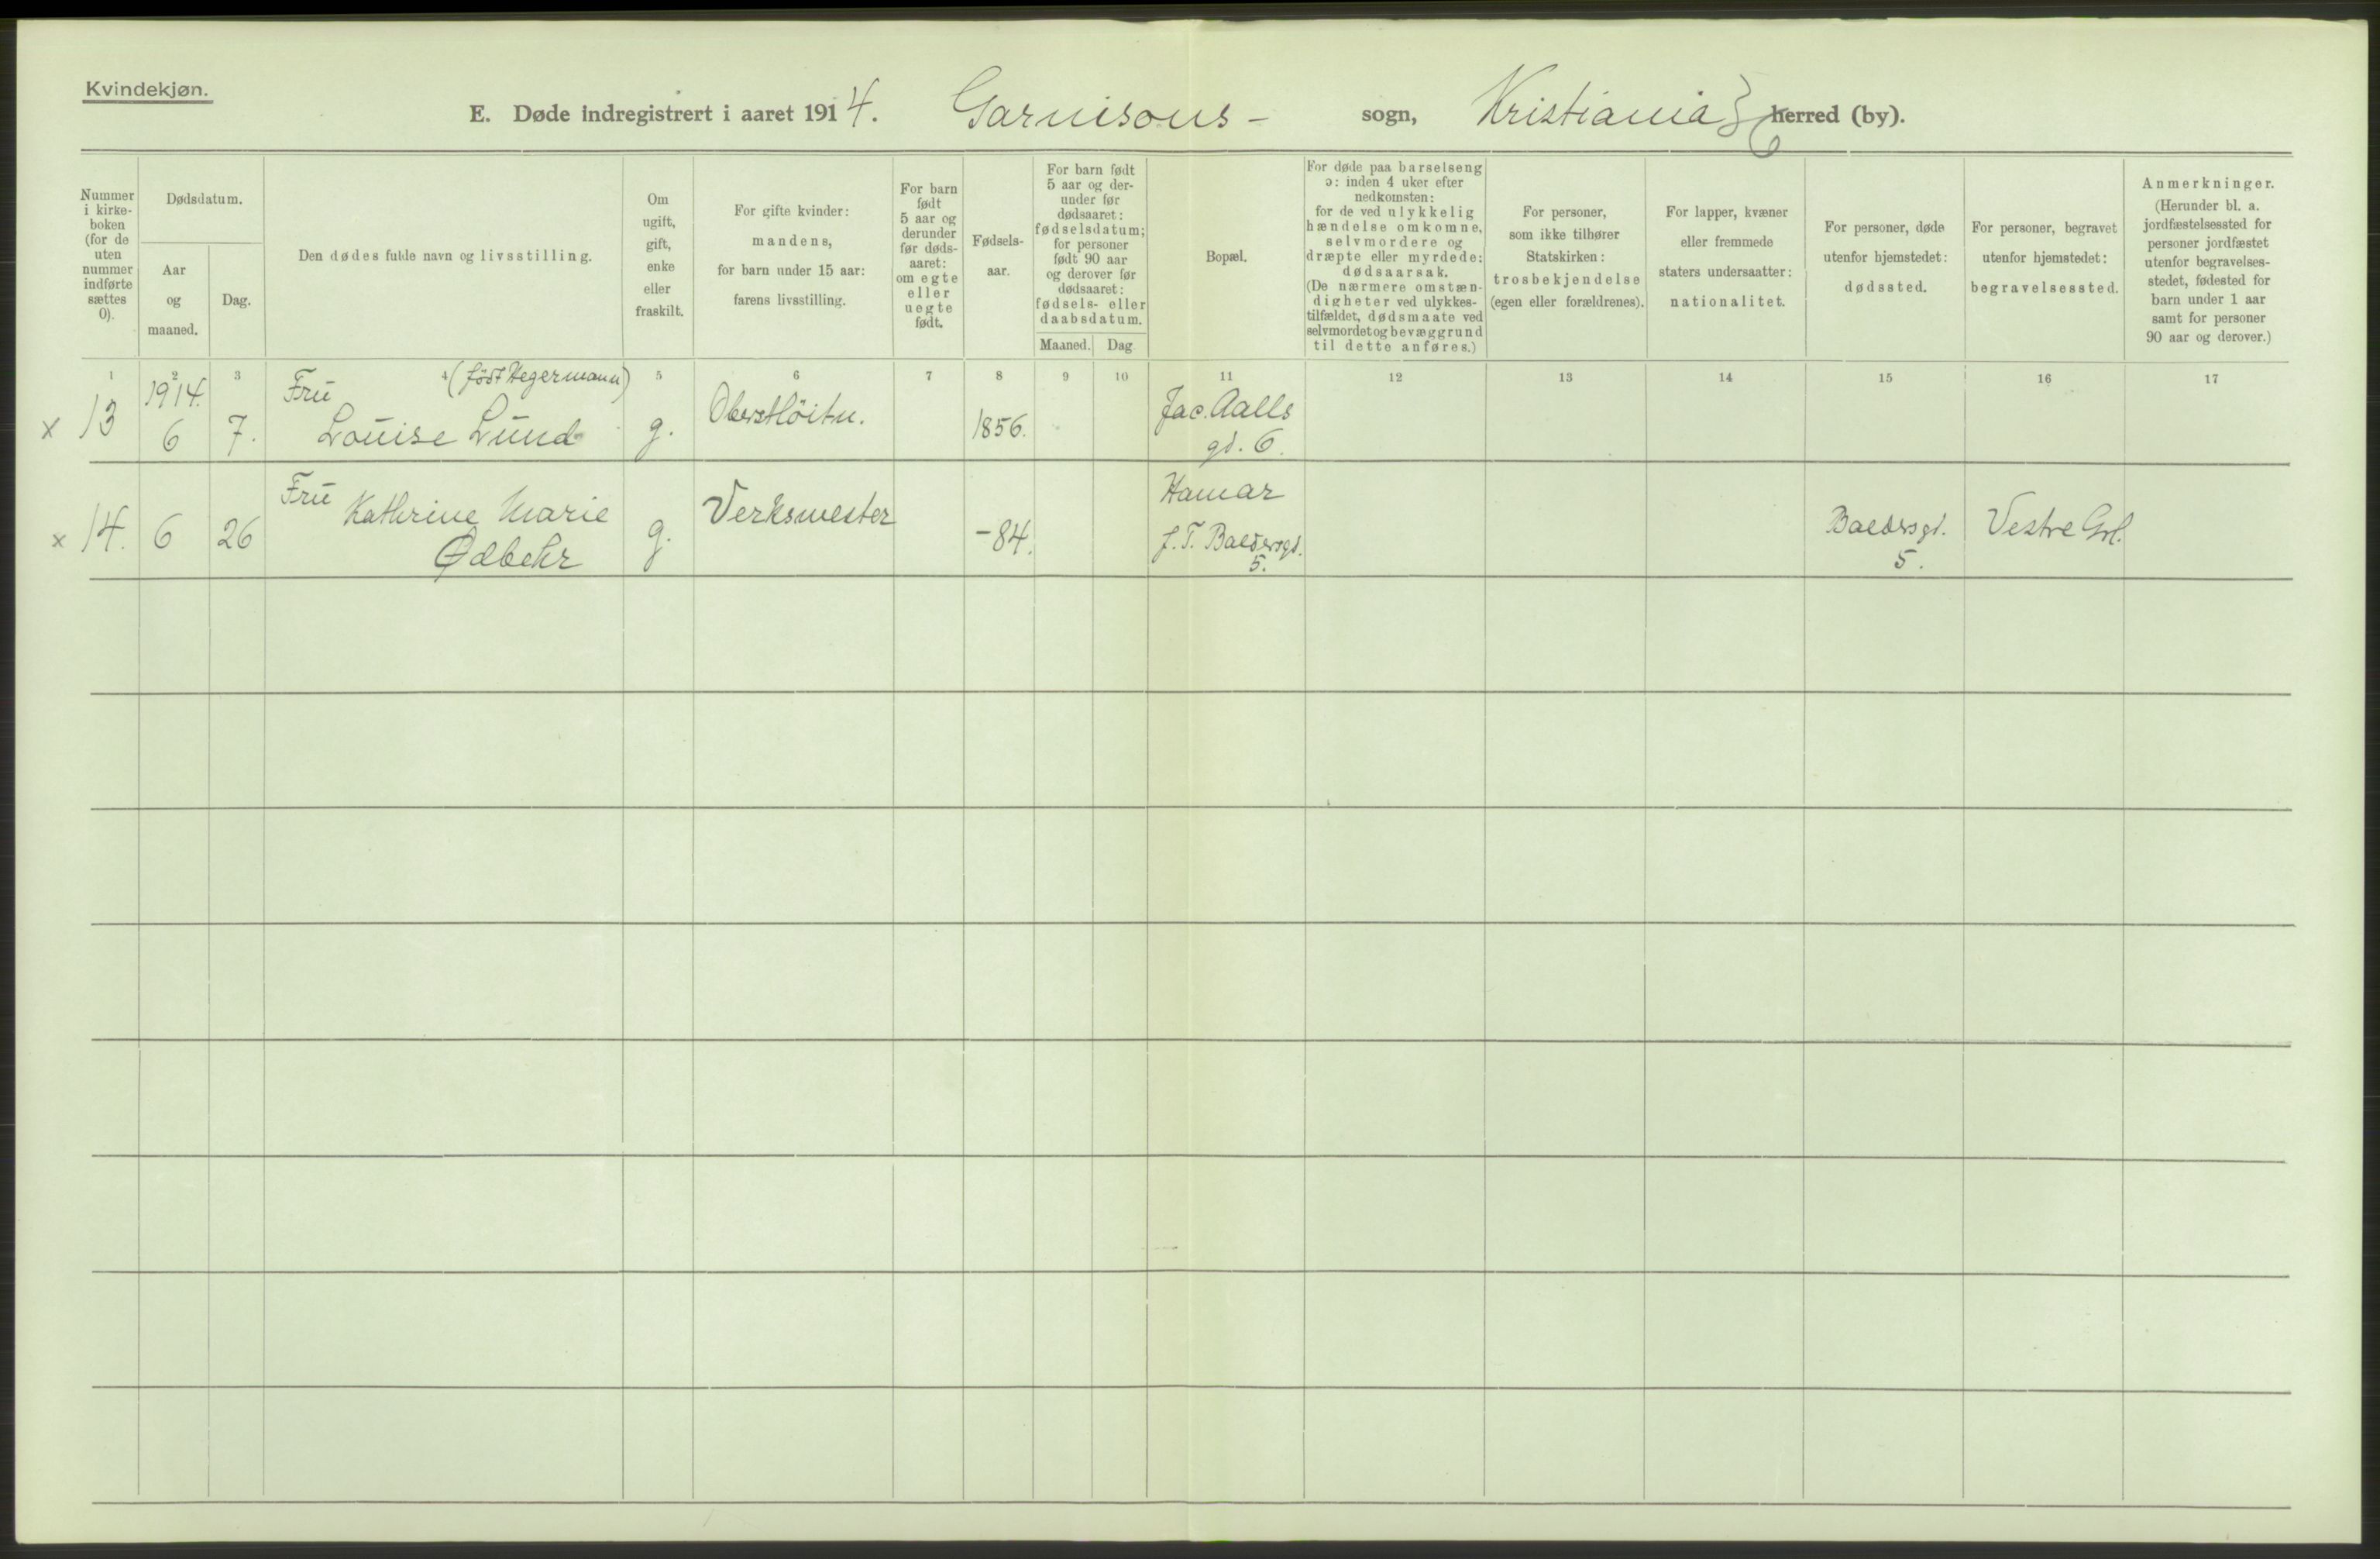 Kvindekjøn.
E. Døde indregistrert i aaret 1914. Garnisons- sogn, Kristiania herred (by).
Nummer
i kirke-
boken
(for de
uten
nummer
indførte
sættes
0).
Dødsdatum.
Aar
og
maaned.
Dag.
Den dødes fulde navn og livsstilling.
Om
ugift,
gift,
enke
eller
fraskilt.
For gifte kvinder:
mandens,
for barn under 15 aar:
farens livsstilling.
For barn
født
5 aar og
derunder
før døds-
aaret:
om egte
eller
uegte
født.
Fødsels-
aar.
For barn født
5 aar og der-
under før
dødsaaret:
fødselsdatum;
for personer
født 90 aar
og derover før
dødsaaret:
fødsels- eller
daabsdatum.
Maaned. Dag
Bopæl.
For døde paa barselseng
ɔ: inden 4 uker efter
nedkomsten:
for de ved ulykkelig
hændelse omkomne,
selvmordere og
dræpte eller myrdede:
dødsaarsak.
(De nærmere omstæn-
digheter ved ulykkes-
tilfældet, dødsmaate ved
selvmordet og bevæggrund
til dette anføres.)
For personer,
som ikke tilhører
Statskirken:
trosbekjendelse
(egen eller forældrenes).
For lapper, kvæner
eller fremmede
staters undersaatter:
nationalitet.
For personer, døde
utenfor hjemstedet:
dødssted.
For personer, begravet
utenfor hjemstedet:
begravelsessted.
Anmerkninger.
(Herunder bl. a.
jordfæstelsessted for
personer jordfæstet
utenfor begravelses-
stedet, fødested for
barn under 1 aar
samt for personer
90 aar og derover.)
1 2 3 4 5 6 7 8 9 10 11 12 13 14 15 16 17
x 13
1914.
6
7.
Fru (født Hegermann)
Louise Lund
g.
Oberstlöitn.
1856.
Jac. Aalls
gd. 6.
x 14.
6
26
Fru
Kathrine Marie
Ødbehr
g.
Verksmester
-84.
Hamar
f. T. Baldersgd.
5.
Baldersgd.
5.
Vestre Grl.